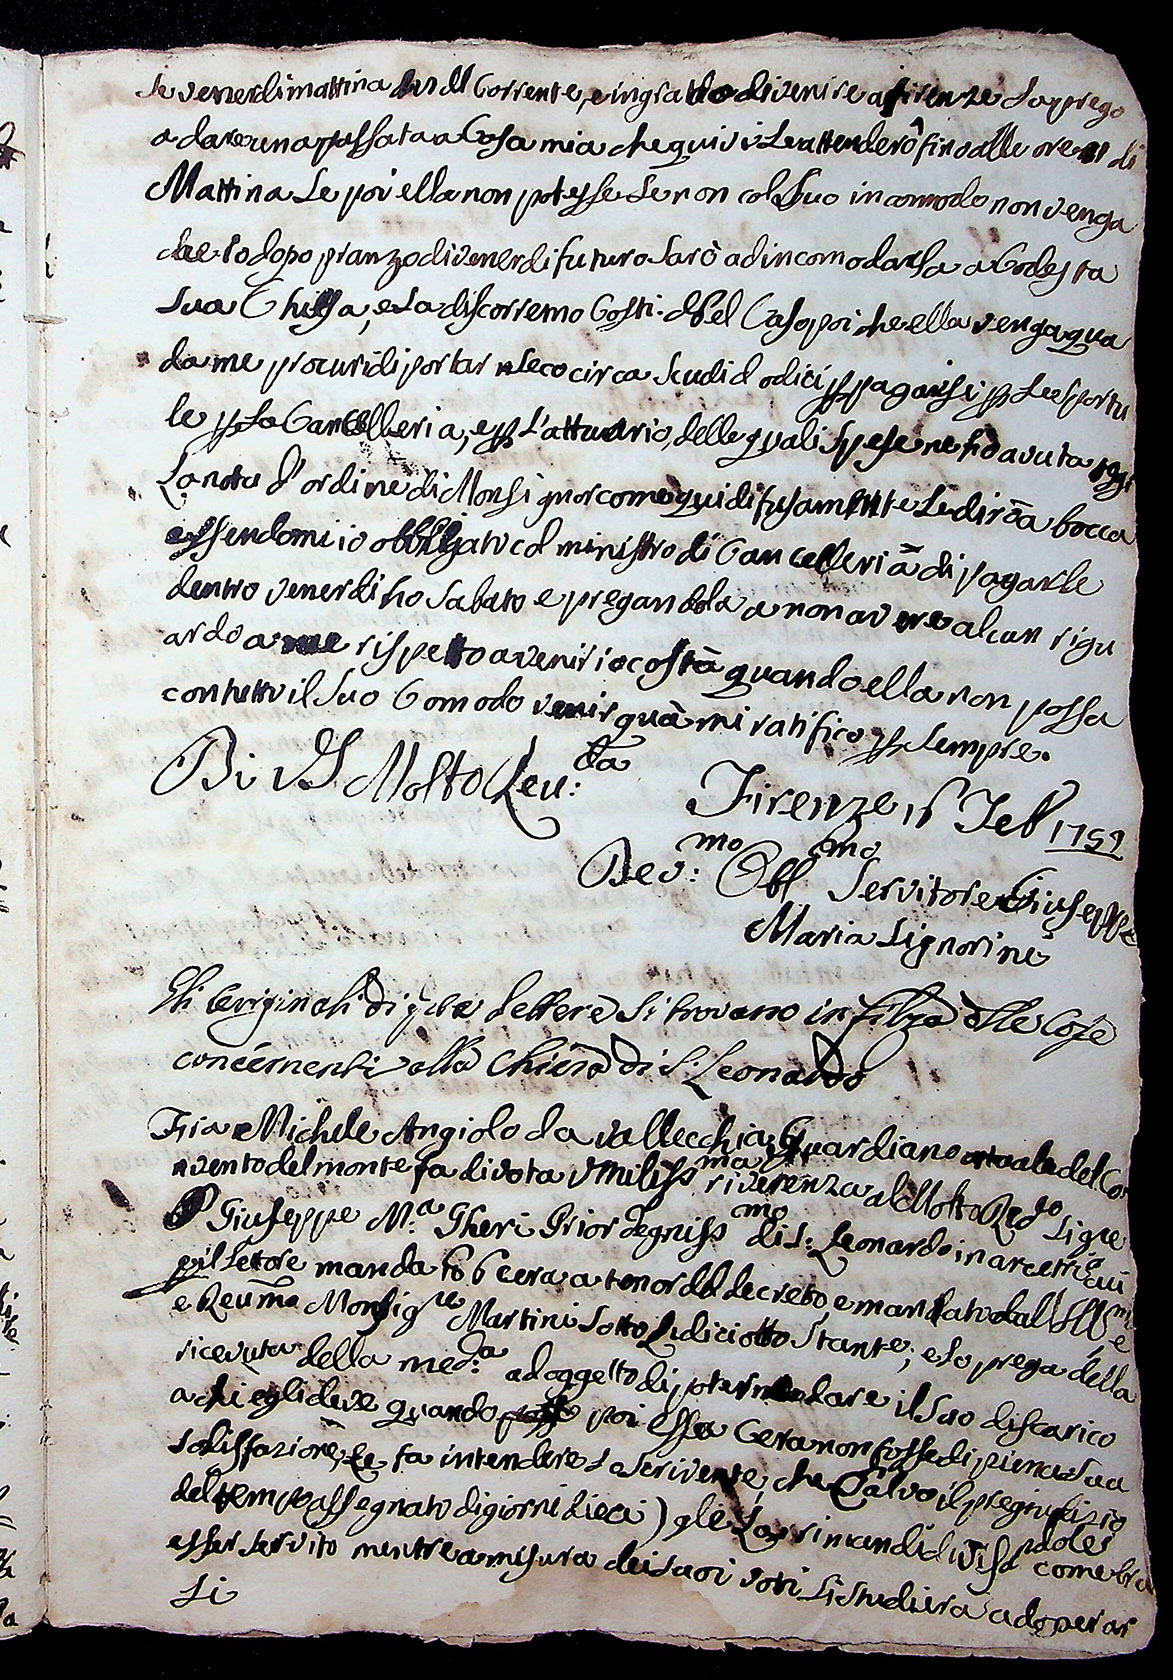 se venerdi mattina del Corrente, e in grado di venire a firenze la prego
a dare una passata a Casa mia che quivi l'attenderò fino alle ore di
Mattina se poi ella non potesse se non col suo incomodo non venga
che io dopo pranzo di venerdi futuro sarò ad incomodarla a Codesta
sua Chiesa, e la discorremo Costi. Nel Caso poi che ella venga qua
da me procuri di portar seco circa scudi dodici p pagarsi p le sportu
le p la Cancelleria, e p l'attuario, delle quali spese ne ho avuta
La nota d'ordine di Monsignor come qui difusamente le dirò a bocca
essendomi io obbligato col ministro di Cancelleria di pagarle
dentro venerdi ho sabato e pregandola a non avere alcun rigu
ardo a me rispetto a venir io costà quando ella non possa
con tutto il suo Comodo venir quà mi ratifico p sempre.
Di VS Molto Reu:da
Firenze 16 Feb 1752
Dev:mo Obl mo Servitore Giuseppe
Maria Signorini
Gli Originali di q.te lettere si trovano in filza delle Cose
concernenti alla Chiesa di S: Leonardo
Fra Michele Angiolo da vallecchia Guardiano attuale del Co
nvento del monte fa divota Umiliss ma riverenza al Molto Red do Sigre
P Giuseppe M.a Gheri Prior degniss mo di S: Leonardo in arcetri a cui
p il latore manda 6 cera a tenor del decreto, e mandato dall' Ill mo
e Reumo Monsig re Martini sotto li diciotto stante, e lo prega della
ricevuta della med:a ad oggetto di poter mandare il suo discarico
a chi egli deve quando poi essa Cera non fosse di piena sua
sodisfazione, le fa intendere lo scrivente, che (salvo il pregiudizio
del tempo assegnato di giorni dieci) gle La rimandi dicendole come brama
esser servito mentre a misura dei suoi voti si studierà adoperar
si